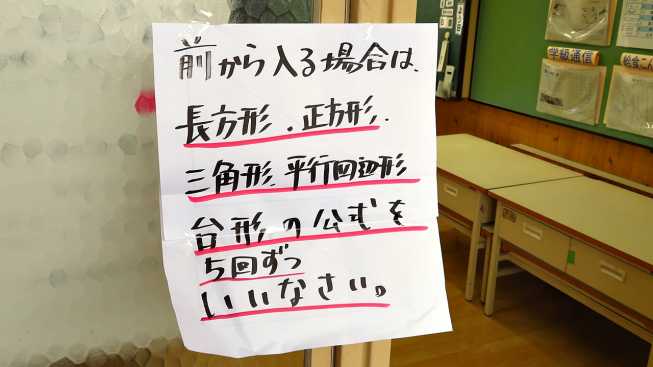 前から入る場合は、
長方形、正方形、
三角形、平行四辺形
台形の公式を
5回ずつ
いいなさい。
学級通信